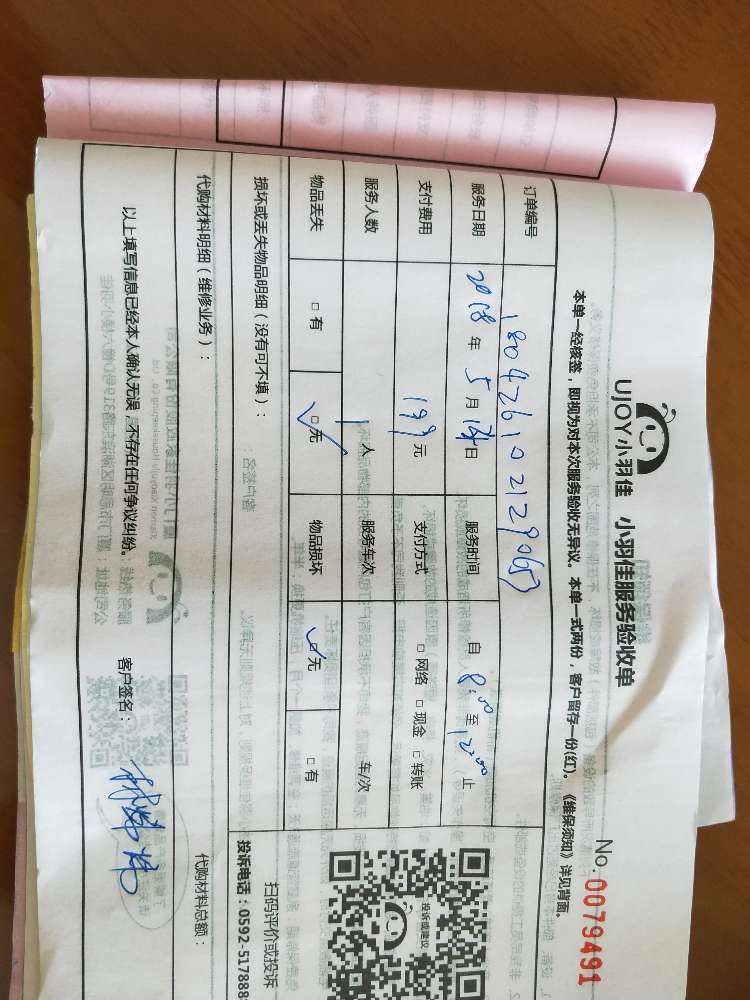 UJOY小羽佳 小羽佳服务验收单
No.0079491
本单一经核签，即视为对本次服务验收无异议。本单一式两份，客户留存一份(红)。《维保须知》详见背面。
订单编号 18042610212906
服务日期 2018年5月 日 服务时间 自8:00至12:00止
支付费用 199元 支付方式 □网络 □现金 □转账
服务人数 1人 服务车次 车/次
物品丢失 □有 □无 物品损坏 □无 □有
损坏或丢失物品明细（没有可不填）：
代购材料明细（维修业务）： 代购材料总额：
以上填写信息已经本人确认无误，不存在任何争议纠纷。 客户签名：
投诉或建议
扫码评价或投诉
投诉电话：0592-517888